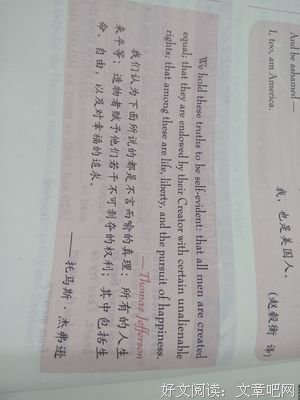 And be ashamed—
I, too, am America.
我，也是美国人。
（赵毅衡 译）
We hold these truths to be self-evident: that all men are created
equal; that they are endowed by their Creator with certain unalienable
rights; that among these are life, liberty, and the pursuit of happiness.
—Thomas Jefferson
我们认为下面所说的都是不言而喻的真理：所有的人生
来平等；造物者赋予他们若干不可剥夺的权利；其中包括生
命、自由，以及对幸福的追求。
——托马斯·杰弗逊
好文阅读：文章吧网